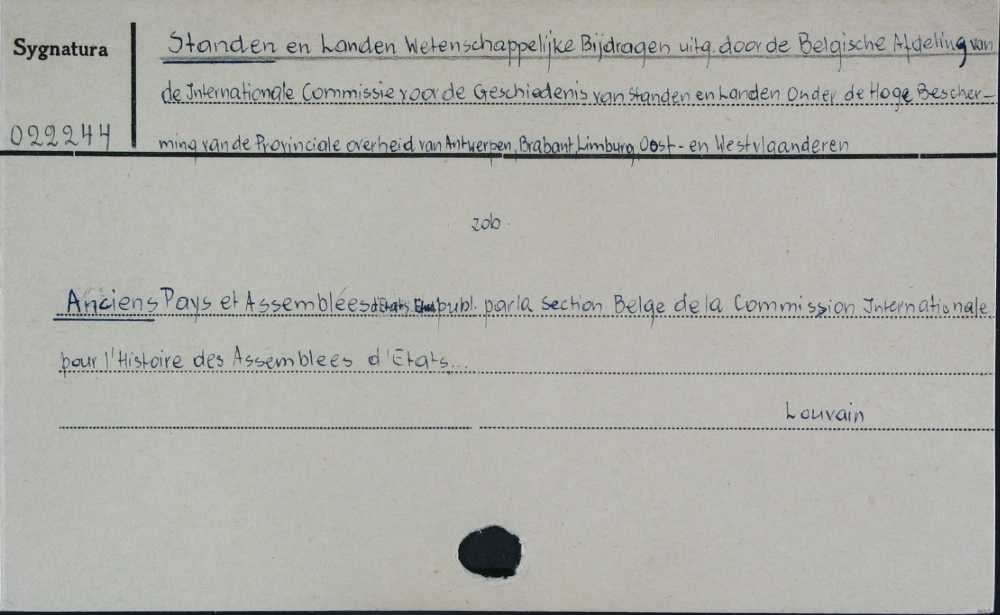 Sygnatura
Standen en Landen Wetenschappelijke Bijdragen uitg. door de Belgische Afdeling van
de Internationale Commissie voor de Geschiedenis van Standen en Landen Onder de Hoge Bescher-
022244
ming van de Provinciale overheid van Antwerpen, Brabant, Limburg, Oost- en Westvlaanderen
zob.
Anciens Pays et Assemblées d'Etats publ. par la Section Belge de la Commission Internationale
pour l'Histoire des Assemblees d'Etats...
Louvain